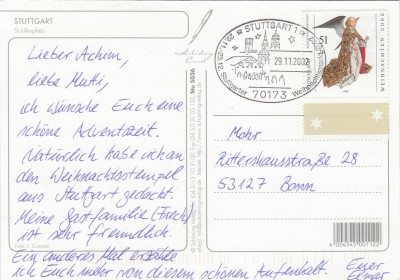 STUTTGART
Schillerplatz
Lieber Achim,
liebe Mutti,
ich wünsche Euch eine
schöne Adventszeit.
Natürlich habe ich an
den Weihnachtsstempel
aus Stuttgart gedacht.
Meine Gastfamilie (Frech)
ist sehr freundlich.
Ein anderes Mal erzähle
ich Euch mehr von diesem schönen Aufenthalt.
Euer
Elmar
Stu 5026
STUTTGART 1
29.11.2002
70173
Stuttgarter Weihnachtsmarkt
51
WEIHNACHTEN 2002
Mohr
Rittershausstraße 28
53127 Bonn
4 024545 001122